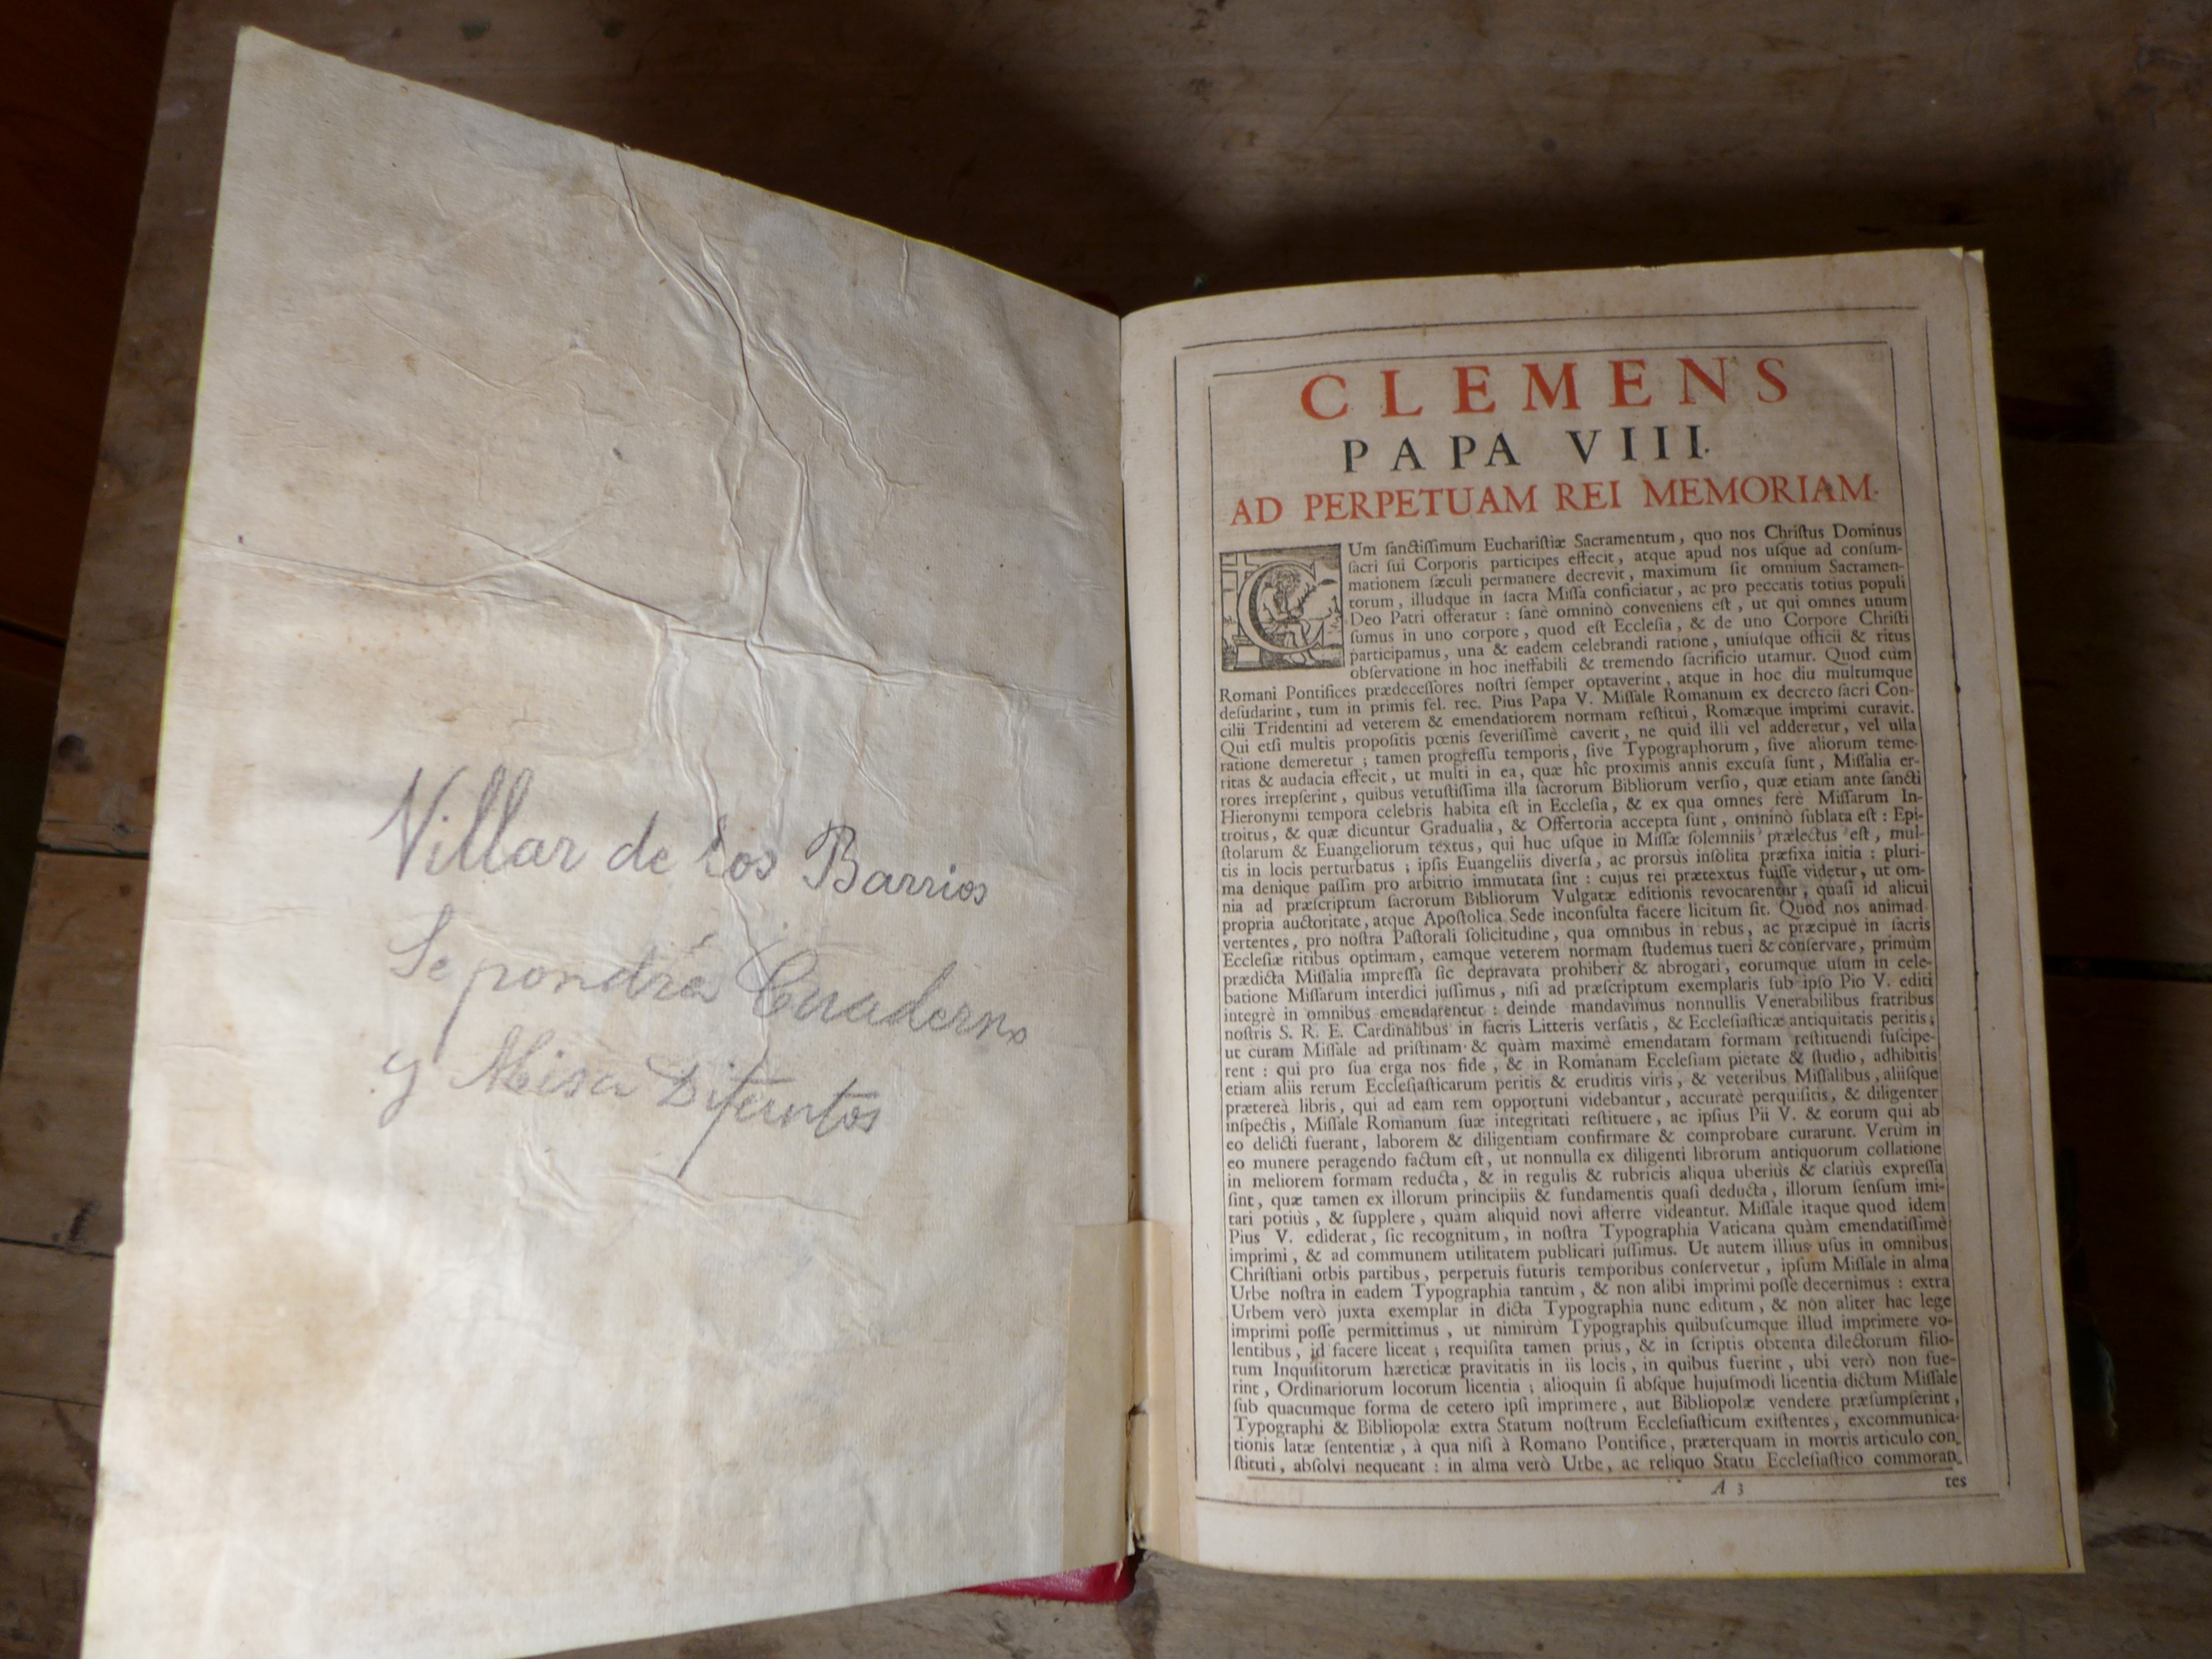 Villar de los Barrios
Se pondrá Cuaderno
y Misa Difuntos
CLEMENS
PAPA VIII.
AD PERPETUAM REI MEMORIAM.
CUm ſanctiſſimum Euchariſtiæ Sacramentum, quo nos Chriſtus Dominus
ſacri ſui Corporis participes effecit, atque apud nos uſque ad conſum-
mationem ſæculi permanere decrevit, maximum ſit omnium Sacramen-
torum, illudque in ſacra Miſſa conficiatur, ac pro peccatis totius populi
Deo Patri offeratur : ſanè omninò conveniens eſt, ut qui omnes unum
ſumus in uno corpore, quod eſt Eccleſia, & de uno Corpore Chriſti
participamus, una & eadem celebrandi ratione, uniuſque officii & ritus
obſervatione in hoc ineffabili & tremendo ſacrificio utamur. Quod cùm
Romani Pontifices prædeceſſores noſtri ſemper optaverint, atque in hoc diu multumque
deſudarint, tum in primis fel. rec. Pius Papa V. Miſſale Romanum ex decreto ſacri Con-
cilii Tridentini ad veterem & emendatiorem normam reſtitui, Romæque imprimi curavit.
Qui etſi multis propoſitis pœnis ſeveriſſimè caverit, ne quid illi vel adderetur, vel ulla
ratione demeretur ; tamen progreſſu temporis, ſive Typographorum, ſive aliorum teme-
ritas & audacia effecit, ut multi in ea, quæ hîc proximis annis excuſa ſunt, Miſſalia er-
rores irrepſerint, quibus vetuſtiſſima illa ſacrorum Bibliorum verſio, quæ etiam ante ſancti
Hieronymi tempora celebris habita eſt in Eccleſia, & ex qua omnes ferè Miſſarum In-
troitus, & quæ dicuntur Gradualia, & Offertoria accepta ſunt, omninò ſublata eſt : Epi-
ſtolarum & Euangeliorum textus, qui huc uſque in Miſſæ ſolemniis prælectus eſt, mul-
tis in locis perturbatus ; ipſis Euangeliis diverſa, ac prorsùs inſolita præfixa initia : pluri-
ma denique paſſim pro arbitrio immutata ſint : cujus rei prætextus fuiſſe videtur, ut om-
nia ad præſcriptum ſacrorum Bibliorum Vulgatæ editionis revocarentur, quaſi id alicui
propria auctoritate, atque Apoſtolica Sede inconſulta facere licitum ſit. Quod nos animad-
vertentes, pro noſtra Paſtorali ſolicitudine, qua omnibus in rebus, ac præcipuè in ſacris
Eccleſiæ ritibus optimam, eamque veterem normam ſtudemus tueri & conſervare, primùm
prædicta Miſſalia impreſſa ſic depravata prohiberi & abrogari, eorumque uſum in cele-
batione Miſſarum interdici juſſimus, niſi ad præſcriptum exemplaris ſub ipſo Pio V. editi
integrè in omnibus emendarentur : deinde mandavimus nonnullis Venerabilibus fratribus
noſtris S. R. E. Cardinalibus in ſacris Litteris verſatis, & Eccleſiaſticæ antiquitatis peritis;
ut curam Miſſale ad priſtinam & quàm maximè emendatam formam reſtituendi ſuſcipe-
rent : qui pro ſua erga nos fide, & in Romanam Eccleſiam pietate & ſtudio, adhibitis
etiam aliis rerum Eccleſiaſticarum peritis & eruditis viris, & veteribus Miſſalibus, aliiſque
prætereà libris, qui ad eam rem opportuni videbantur, accuratè perquiſitis, & diligenter
inſpectis, Miſſale Romanum ſuæ integritati reſtituere, ac ipſius Pii V. & eorum qui ab
eo delicti fuerant, laborem & diligentiam confirmare & comprobare curarunt. Verùm in
eo munere peragendo factum eſt, ut nonnulla ex diligenti librorum antiquorum collatione
in meliorem formam reducta, & in regulis & rubricis aliqua uberiùs & clariùs expreſſa
ſint, quæ tamen ex illorum principiis & fundamentis quaſi deducta, illorum ſenſum imi-
tari potiùs, & ſupplere, quàm aliquid novi afferre videantur. Miſſale itaque quod idem
Pius V. ediderat, ſic recognitum, in noſtra Typographia Vaticana quàm emendatiſſimè
imprimi, & ad communem utilitatem publicari juſſimus. Ut autem illius uſus in omnibus
Chriſtiani orbis partibus, perpetuis futuris temporibus conſervetur, ipſum Miſſale in alma
Urbe noſtra in eadem Typographia tantùm, & non alibi imprimi poſſe decernimus : extra
Urbem verò juxta exemplar in dicta Typographia nunc editum, & non aliter hac lege
imprimi poſſe permittimus, ut nimirùm Typographis quibuſcumque illud imprimere vo-
lentibus, id facere liceat ; requiſita tamen prius, & in ſcriptis obtenta dilectorum filio-
rum Inquiſitorum hæreticæ pravitatis in iis locis, in quibus fuerint, ubi verò non fue-
rint, Ordinariorum locorum licentia ; alioquin ſi abſque hujuſmodi licentia dictum Miſſale
ſub quacumque forma de cetero ipſi imprimere, aut Bibliopolæ vendere præſumpſerint,
Typographi & Bibliopolæ extra Statum noſtrum Eccleſiaſticum exiſtentes, excommunica-
tionis latæ ſententiæ, à qua niſi à Romano Pontifice, præterquam in mortis articulo con-
ſtituti, abſolvi nequeant : in alma verò Urbe, ac reliquo Statu Eccleſiaſtico commoran-
A 3
tes